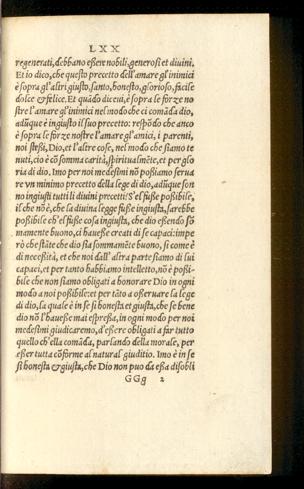 LXX
regenerati, debbano eßere nobili, generosi et diuini.
Et io dico, che questo precetto dell'amare gl'inimici
è sopra gl'altri giusto, santo, honesto, glorioso, facile
dolce & felice. Et quãdo diceui, è sopra le forze no
stre l'amare gl'inimici nel modo che ci comãda dio,
adũque è ingiusto il suo precetto: respõdo che anco
è sopra le forze nostre l'amare gl'amici, i parenti,
noi steßi, Dio, et l'altre cose, nel modo che siamo te
nuti, cio è cõ somma carità, spiritualmẽte, et per glo
ria di dio. Imo per noi medesimi nõ poßiamo serua
re vn minimo precetto della lege di dio, adũque son
no ingiusti tutti li diuini precetti? S'el fuße poßibile,
il che nõ è, che la diuina legge fuße ingiusta, sarebbe
poßibile ch'el fuße cosa ingiusta, che dio eßendo sõ
mamente buono, ci haueße creati di se capaci: impe
rò che stãte che dio sia sommamẽte buono, si come è
di neceßità, et che noi dall'altra parte siamo di lui
capaci, et per tanto habbiamo intelletto, nõ è poßi-
bile che non siamo obligati a honorare Dio in ogni
modo a noi poßibile: et per tãto a oßeruare la lege
di dio, la quale è in se si honesta et giusta, che se bene
dio nõ l'haueße mai espreßa, in ogni modo per noi
medesimi giudicaremo, d'eßere obligati a far tutto
quello ch'ella comãda, parlando della morale, per
eßer tutta cõforme al natural giuditio. Imo è in se
si honesta & giusta, che Dio non puo da eßa disobli
GGg 2